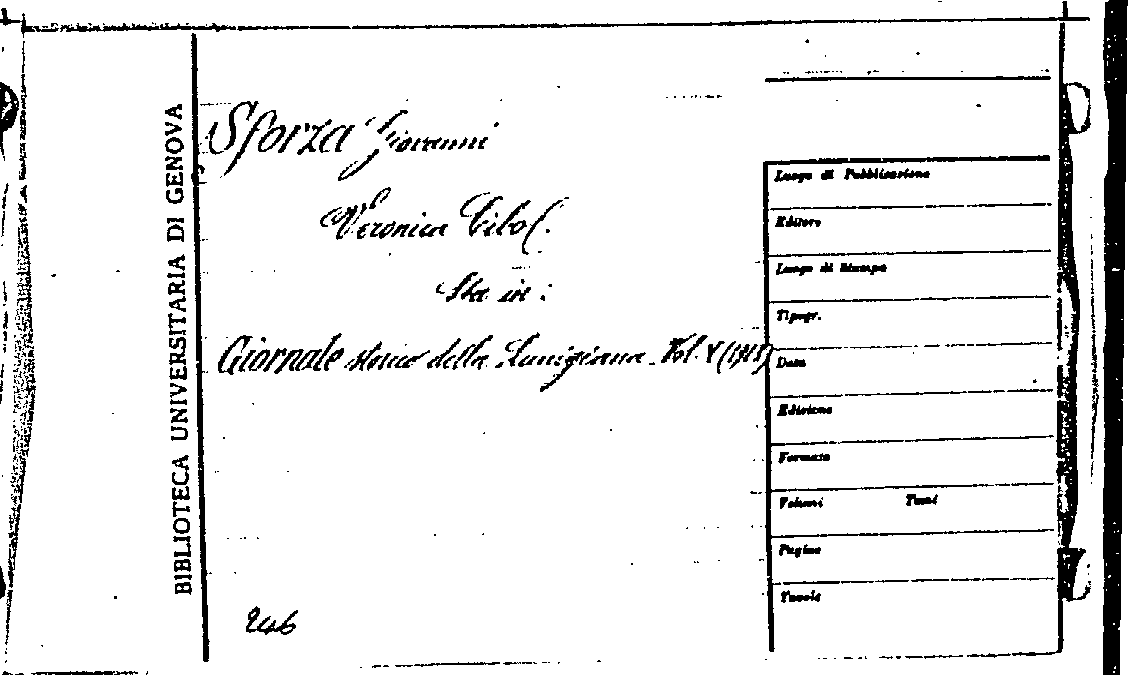 BIBLIOTECA UNIVERSITARIA DI GENOVA
Sforza Giovanni
Veronica Cibo (.
Sta in :
Giornale storico della Lunigiana. Vol. V (1913)
246
Luogo di Pubblicazione
Editore
Luogo di Stampa
Tipogr.
Data
Edizione
Formato
Volumi Tomi
Pagine
Tavole